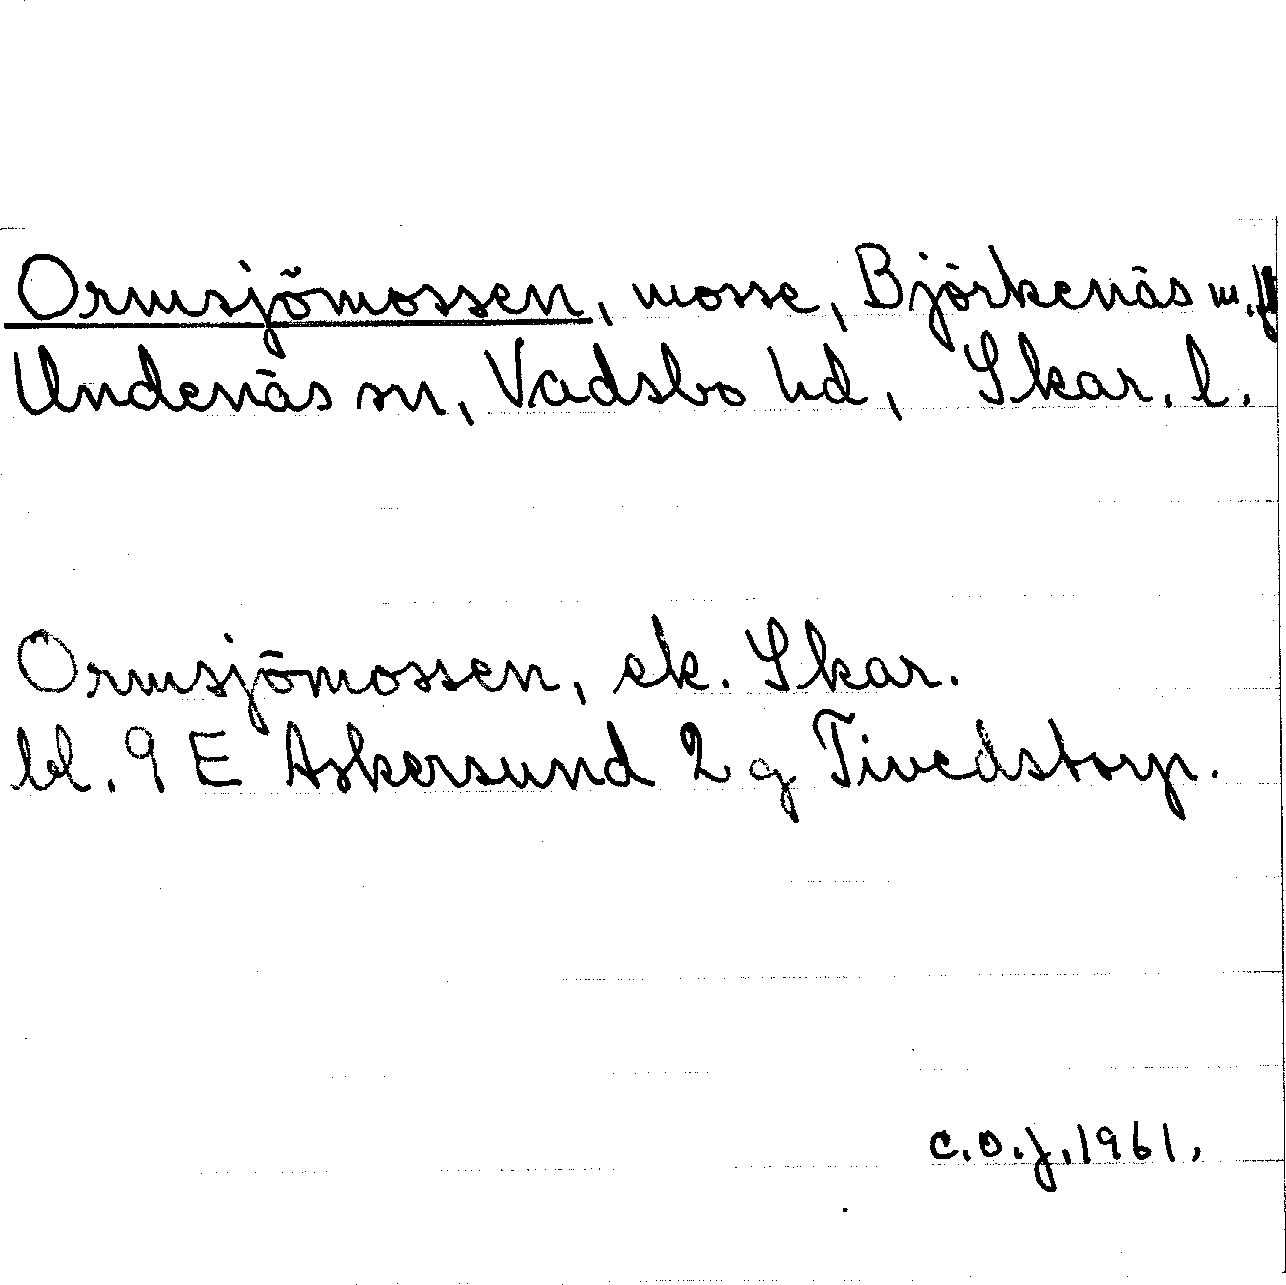 Ormsjömossen, mosse, Björkenäs m.fl
Undenäs sn, Vadsbo hd, Skar. l.
Ormsjömossen, ek. Skar.
bl. 9 E Askersund 2 g Tivedstorp.
C.O.J. 1961.